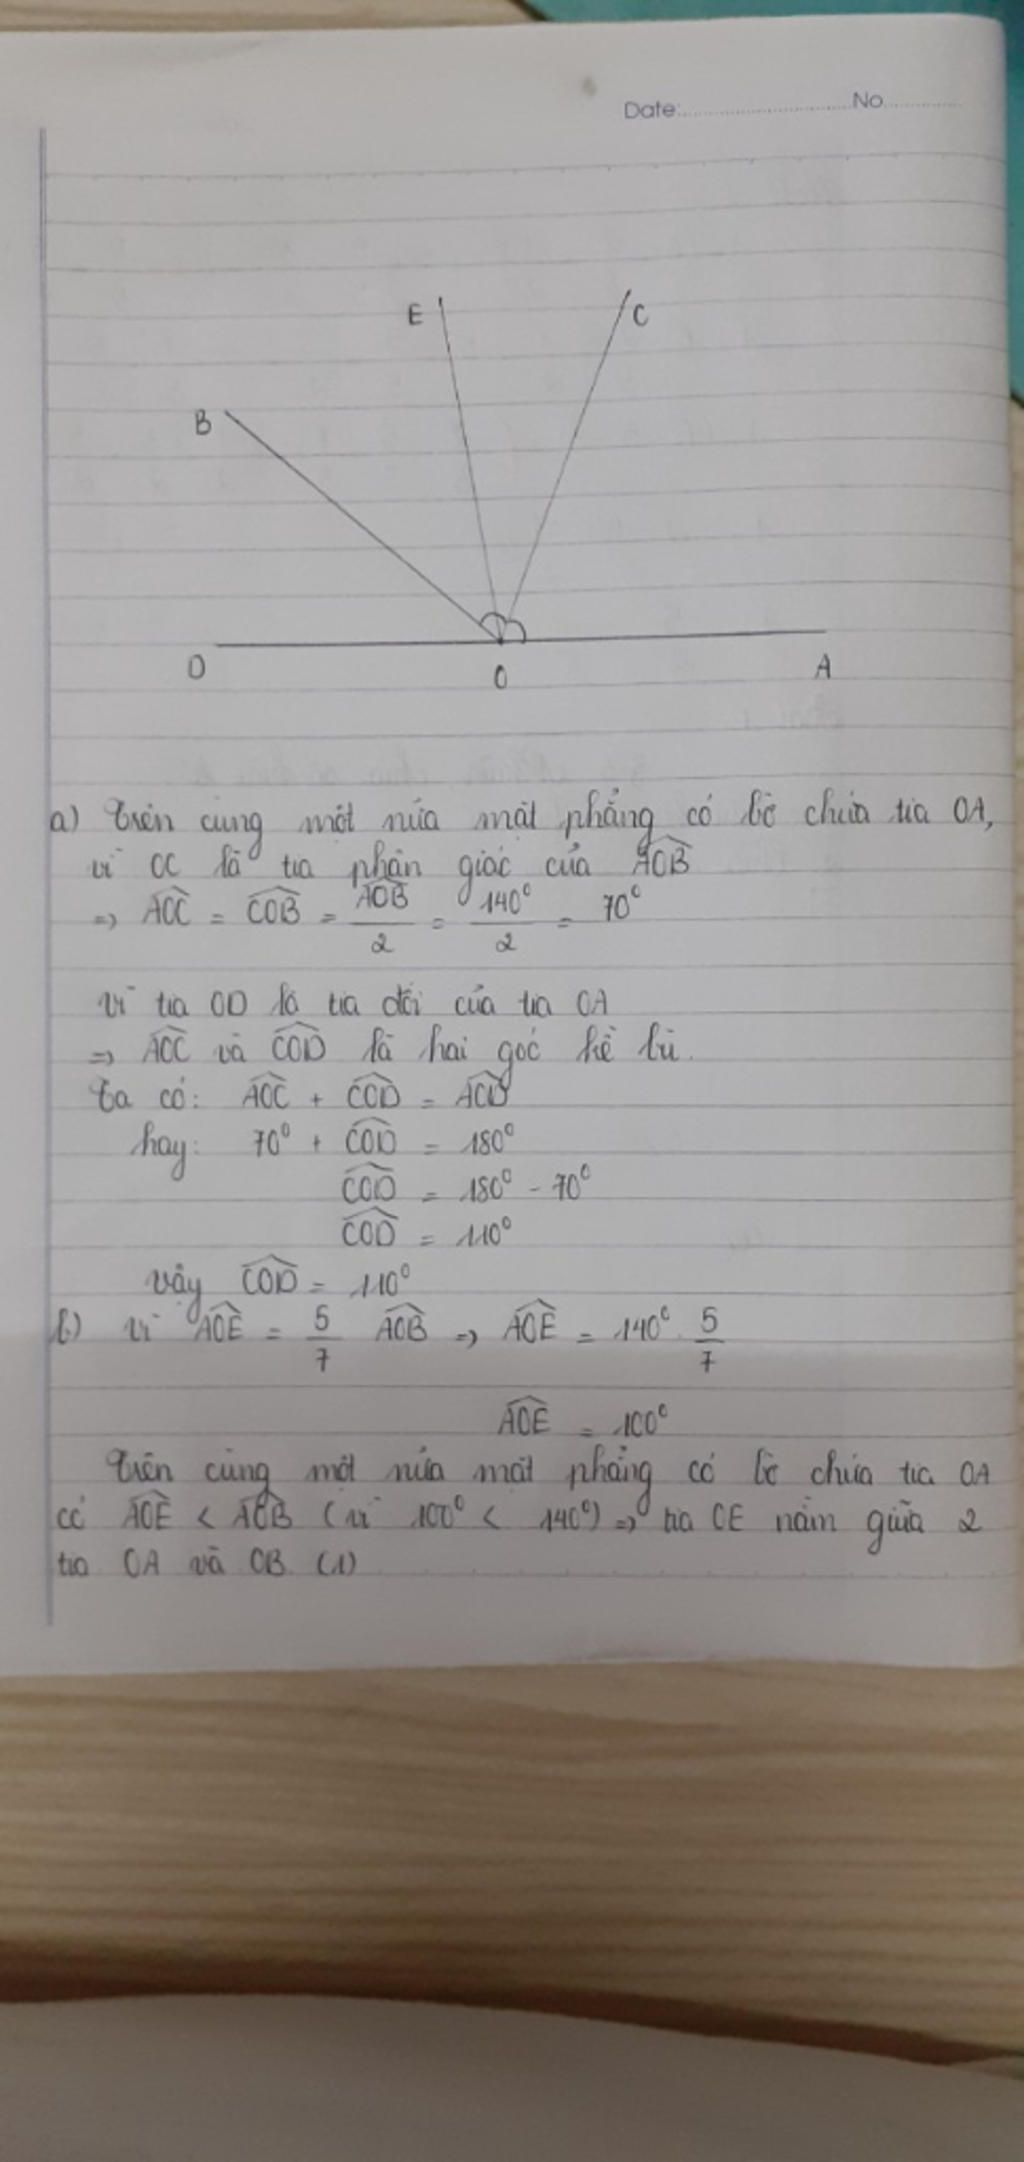 Date: No
E
C
B
D
O
A
a) Trên cùng một nửa mặt phẳng có bờ chứa tia OA,
vì OC là tia phân giác của AOB
=> AOC = COB = AOB/2 = 140°/2 = 70°
Vì tia OD là tia đối của tia OA
=> AOC và COD là hai góc kề bù.
Ta có: AOC + COD = AOD
hay: 70° + COD = 180°
COD = 180° - 70°
COD = 110°
vậy COD = 110°
b) vì AOE = 5/7 AOB => AOE = 140° . 5/7
AOE = 100°
Trên cùng một nửa mặt phẳng có bờ chứa tia OA
có AOE < AOB (vì 100° < 140°) => tia OE nằm giữa 2
tia OA và OB (1)